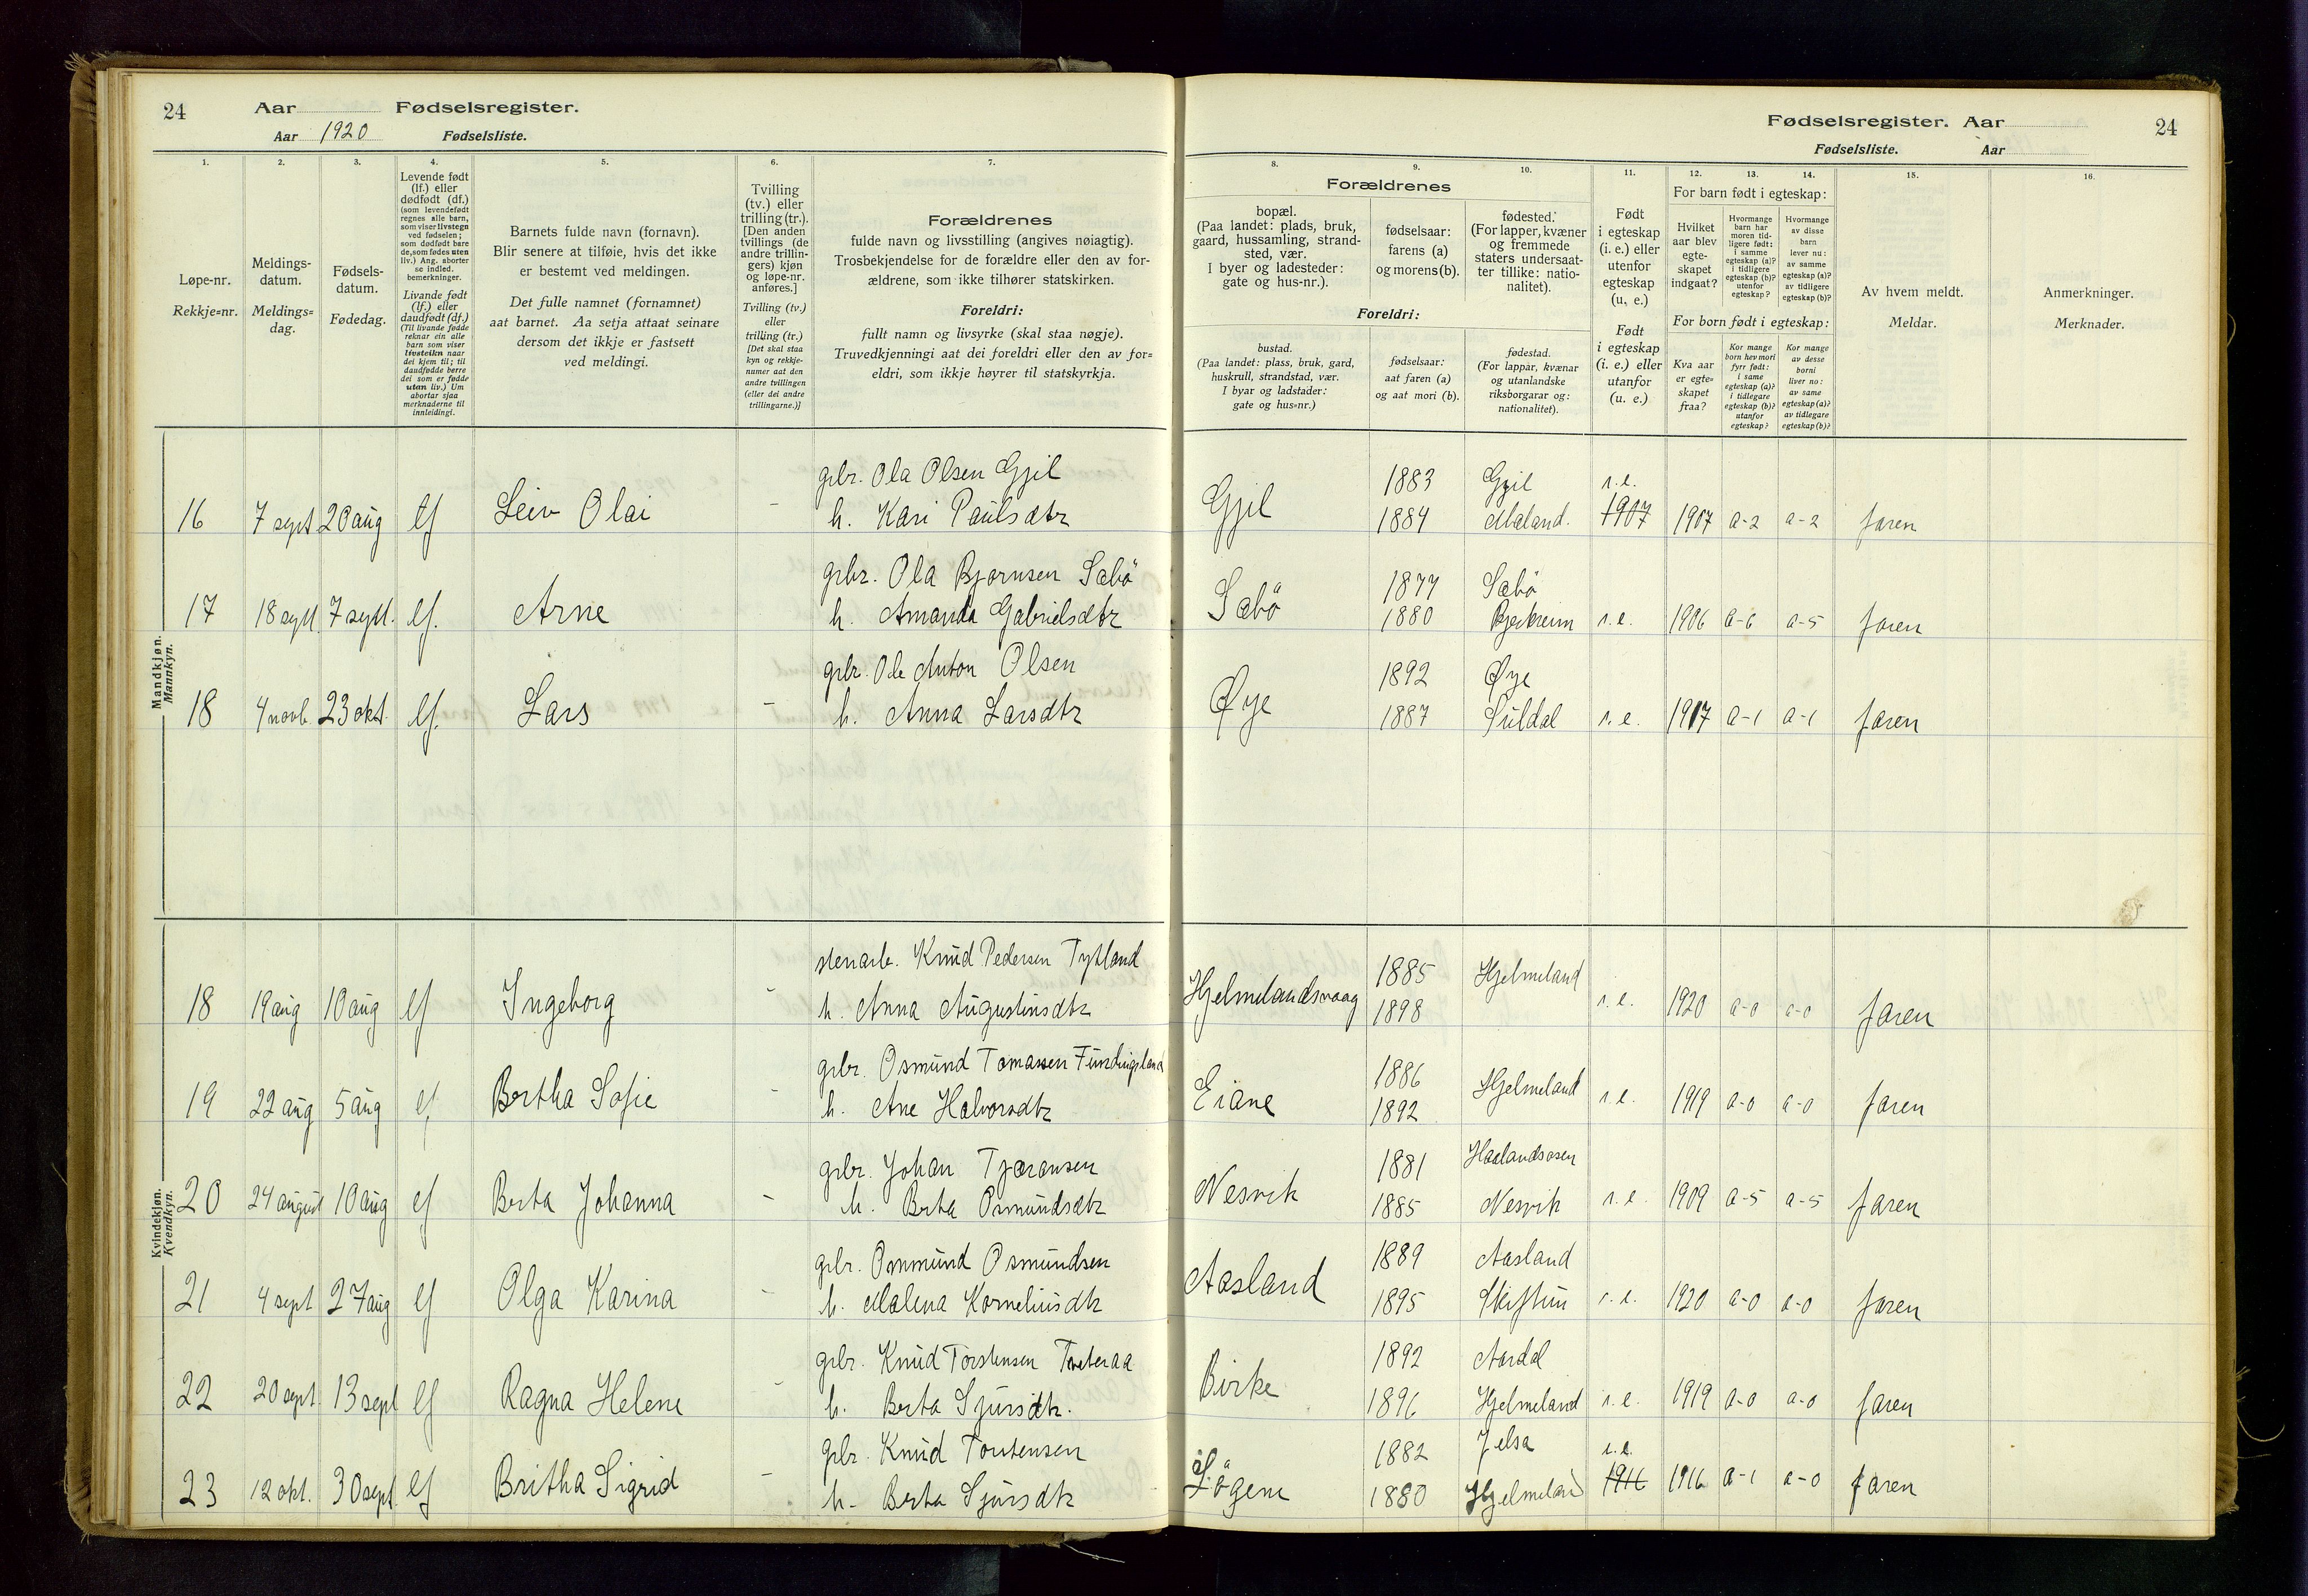 24 Aar Fødselsregister.
Aar 1920 Fødselsliste.
1. 2. 3. 4. 5. 6. 7.
Løpe-nr.
Rekkje=nr.
Meldings-
datum.
Meldings=
dag.
Fødsels-
datum.
Fødedag.
Levende født
(lf.) eller
dødfødt (df.)
(som levendefødt
regnes alle barn,
som viser livstegn
ved fødselen;
som dødfødt bare
de, som fødes uten
liv.) Ang. aborter
se indled.
bemerkninger.
Livande født
(lf.) eller
daudfødt (df.)
(Til livande fødde
reknar ein alle
barn som viser
livsteikn naar
dei kjem til; til
daudfødde berre
dei som er fødde
utan liv.) Um
abortar sjaa
merknaderne til
innleidingi.
Barnets fulde navn (fornavn).
Blir senere at tilføie, hvis det ikke
er bestemt ved meldingen.
Det fulle namnet (fornamnet)
aat barnet. Aa setja attaat seinare
dersom det ikkje er fastsett
ved meldingi.
Tvilling
(tv.) eller
trilling (tr.).
[Den anden
tvillings (de
andre trillin-
gers) kjøn
og løpe-nr.
anføres.]
Tvilling (tv.)
eller
trilling (tr.)
[Det skal staa
kyn og rekkje-
numer aat den
andre tvillingen
(eller dei andre
trillingarne.)]
Forældrenes
fulde navn og livsstilling (angives nøiagtig).
Trosbekjendelse for de forældre eller den av for-
ældrene, som ikke tilhører statskirken.
Foreldri:
fullt namn og livsyrke (skal staa nøgje).
Truvedkjenningi aat dei foreldri eller den av for=
eldri, som ikkje høyrer til statskyrkja.
Mandkjøn.
Mannkyn.
grbr. Ola Olsen Gjil
16 7 sept 20 aug lf Leiv Olai - h. Kari Paulsdtr
grbr. Ola Bjørnsen Sæbö
17 18 sept. 7 sept. lf. Arne h. Amanda Gabrielsdtr
grbr. Ole Anton Olsen
18 4 novb. 23 okt. lf. Lars - h. Anna Larsdtr
Kvindekjøn.
Kvendkyn.
stenarb. Knud Pedersen Tytland
18 19 aug 10 aug lf Ingeborg - h. Anna Augustinsdtr
grbr. Osmund Tomassen Fundingsland
19 22 aug 5 aug lf Bertha Sofie - h. Ane Halvorsdtr
grbr. Johan Tjæransen
20 24 august 10 aug lf Berta Johanna - h. Berta Osmundsdtr
grbr. Ommund Osmundsen
21 4 sept 27 aug lf Olga Karina - h. Malena Korneliusdtr
grbr. Knud Torstensen Tveteraa
22 20 sept. 13 sept lf Ragna Helene - h. Berta Sjursdtr.
grbr. Knud Tortensen
23 12 okt. 30 sept. lf Britha Sigrid - h. Berta Sjursdtr
Fødselsregister. Aar 24
Fødselsliste. Aar
8. 9. 10. 11. 12. 13. 14. 15. 16.
Forældrenes
bopæl.
(Paa landet: plads, bruk,
gaard, hussamling, strand-
sted, vær.
I byer og ladesteder:
gate og hus-nr.).
fødselsaar:
farens (a)
og morens (b).
fødested.
(For lapper, kvæner
og fremmede
staters undersaat-
ter tillike: natio-
nalitet).
Foreldri:
bustad.
(Paa landet: plass, bruk, gard,
huskrull, strandstad, vær.
I byar og ladstader:
gate og hus=nr.)
fødselsaar:
aat faren (a)
og aat mori (b).
fødestad.
(For lappar, kvænar
og utanlandske
riksborgarar og:
nationalitet).
Født
i egteskap
(i. e.) eller
utenfor
egteskap
(u. e.)
Født
i egteskap
(i. e.) eller
utanfor
(u. e.)
For barn født i egteskap:
Hvilket
aar blev
egte-
skapet
indgaat?
Hvormange
barn har
moren tid-
ligere født:
i samme
egteskap (a)?
i tidligere
egteskap (b)?
utenfor
egteskap?
Hvormange
av disse
barn
lever nu:
av samme
egteskap (a)?
av tidligere
egteskap (b)?
For born født i egteskap:
Kva aar
er egte=
skapet
fraa?
Kor mange
born hev mori
fyrr født:
i same
egteskap (a)?
i tidlegare
egteskap (b)?
utanfor
egteskap?
Kor mange
av desse
borni
liver no:
av same
egteskap (a)?
av tidlegare
egteskap (b)?
Av hvem meldt.
Meldar.
Anmerkninger.
Merknader.
1883 Gjil i.e.
Gjil 1884 Mæland. 1907 1907 a-2 a-2 faren
1877 Sæbö
Sæbö 1880 Bjerkreim i.e. 1906 a-6 a-5 faren
1892 Øye
Øye 1887 Suldal i.e. 1917 a-1 a-1 faren
1885 Hjelmeland
Hjelmelandsvaag 1898 i.e. 1920 a-0 a-0 faren
1886 Hjelmeland
Eiane 1892 i.e. 1919 a-0 a-0 faren
1881 Haalandsosen
Nesvik 1885 Nesvik i.e. 1909 a-5 a-5 faren
1889 Aasland
Aasland 1895 Skiftun i.e. 1920 a-0 a-0 faren
1892 Aardal
Birke 1896 Hjelmeland i.e. 1919 a-0 a-0 faren
1882 Jelsa i.e.
1880 Hjelmeland 1916 1916 a-1 a-0 faren